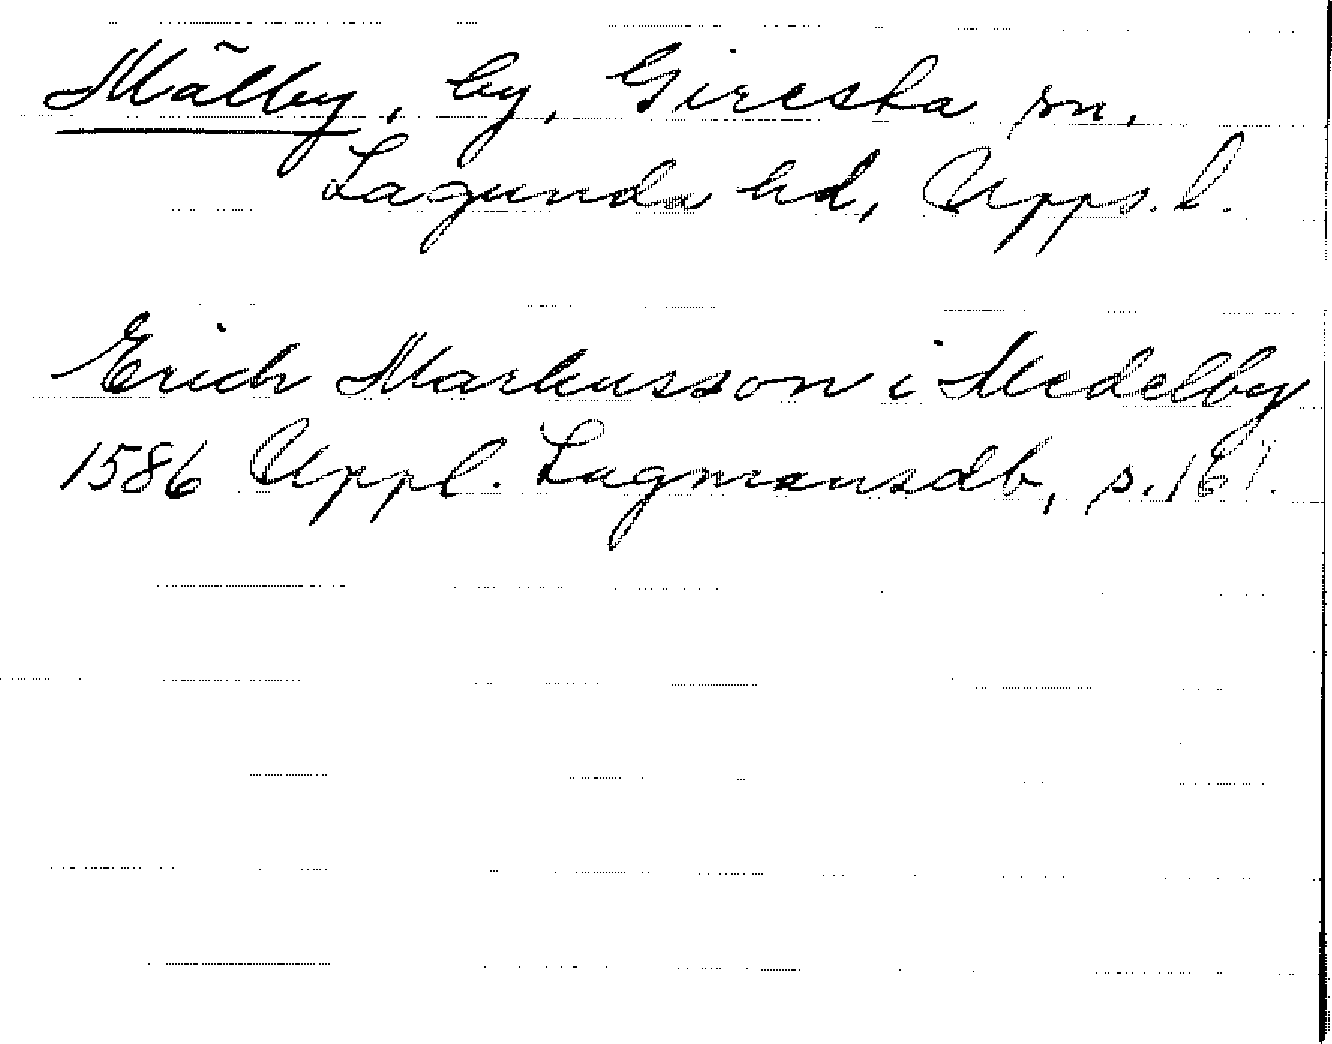 Mälby, by, Giresta sn.
Lagunda hd, Upps. l.
Erich Markusson i Medelby
1586 Uppl. Lagmansdb, s. 161.